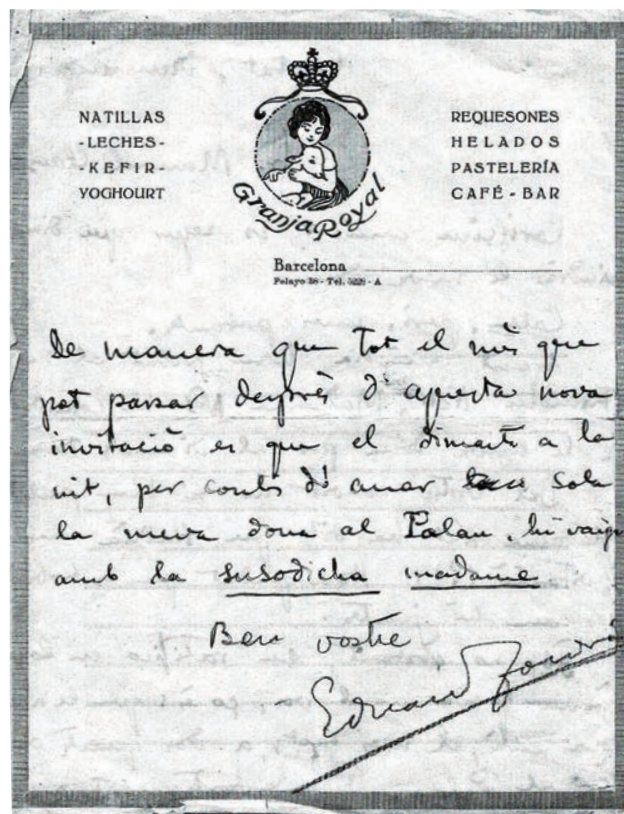 NATILLAS
-LECHES-
-KEFIR-
YOGHOURT
REQUESONES
HELADOS
PASTELERÍA
CAFÉ - BAR
Granja Royal
Barcelona
Pelayo 58 - Tel. - A
De manera que tot el més que
pot passar després d'aquesta nova
invitació es que el dimarts a la
nit, per contes d'anar sola
la meva dona al Palau, hi vaig
amb la susodicha madame
Ben vostre
Eduard